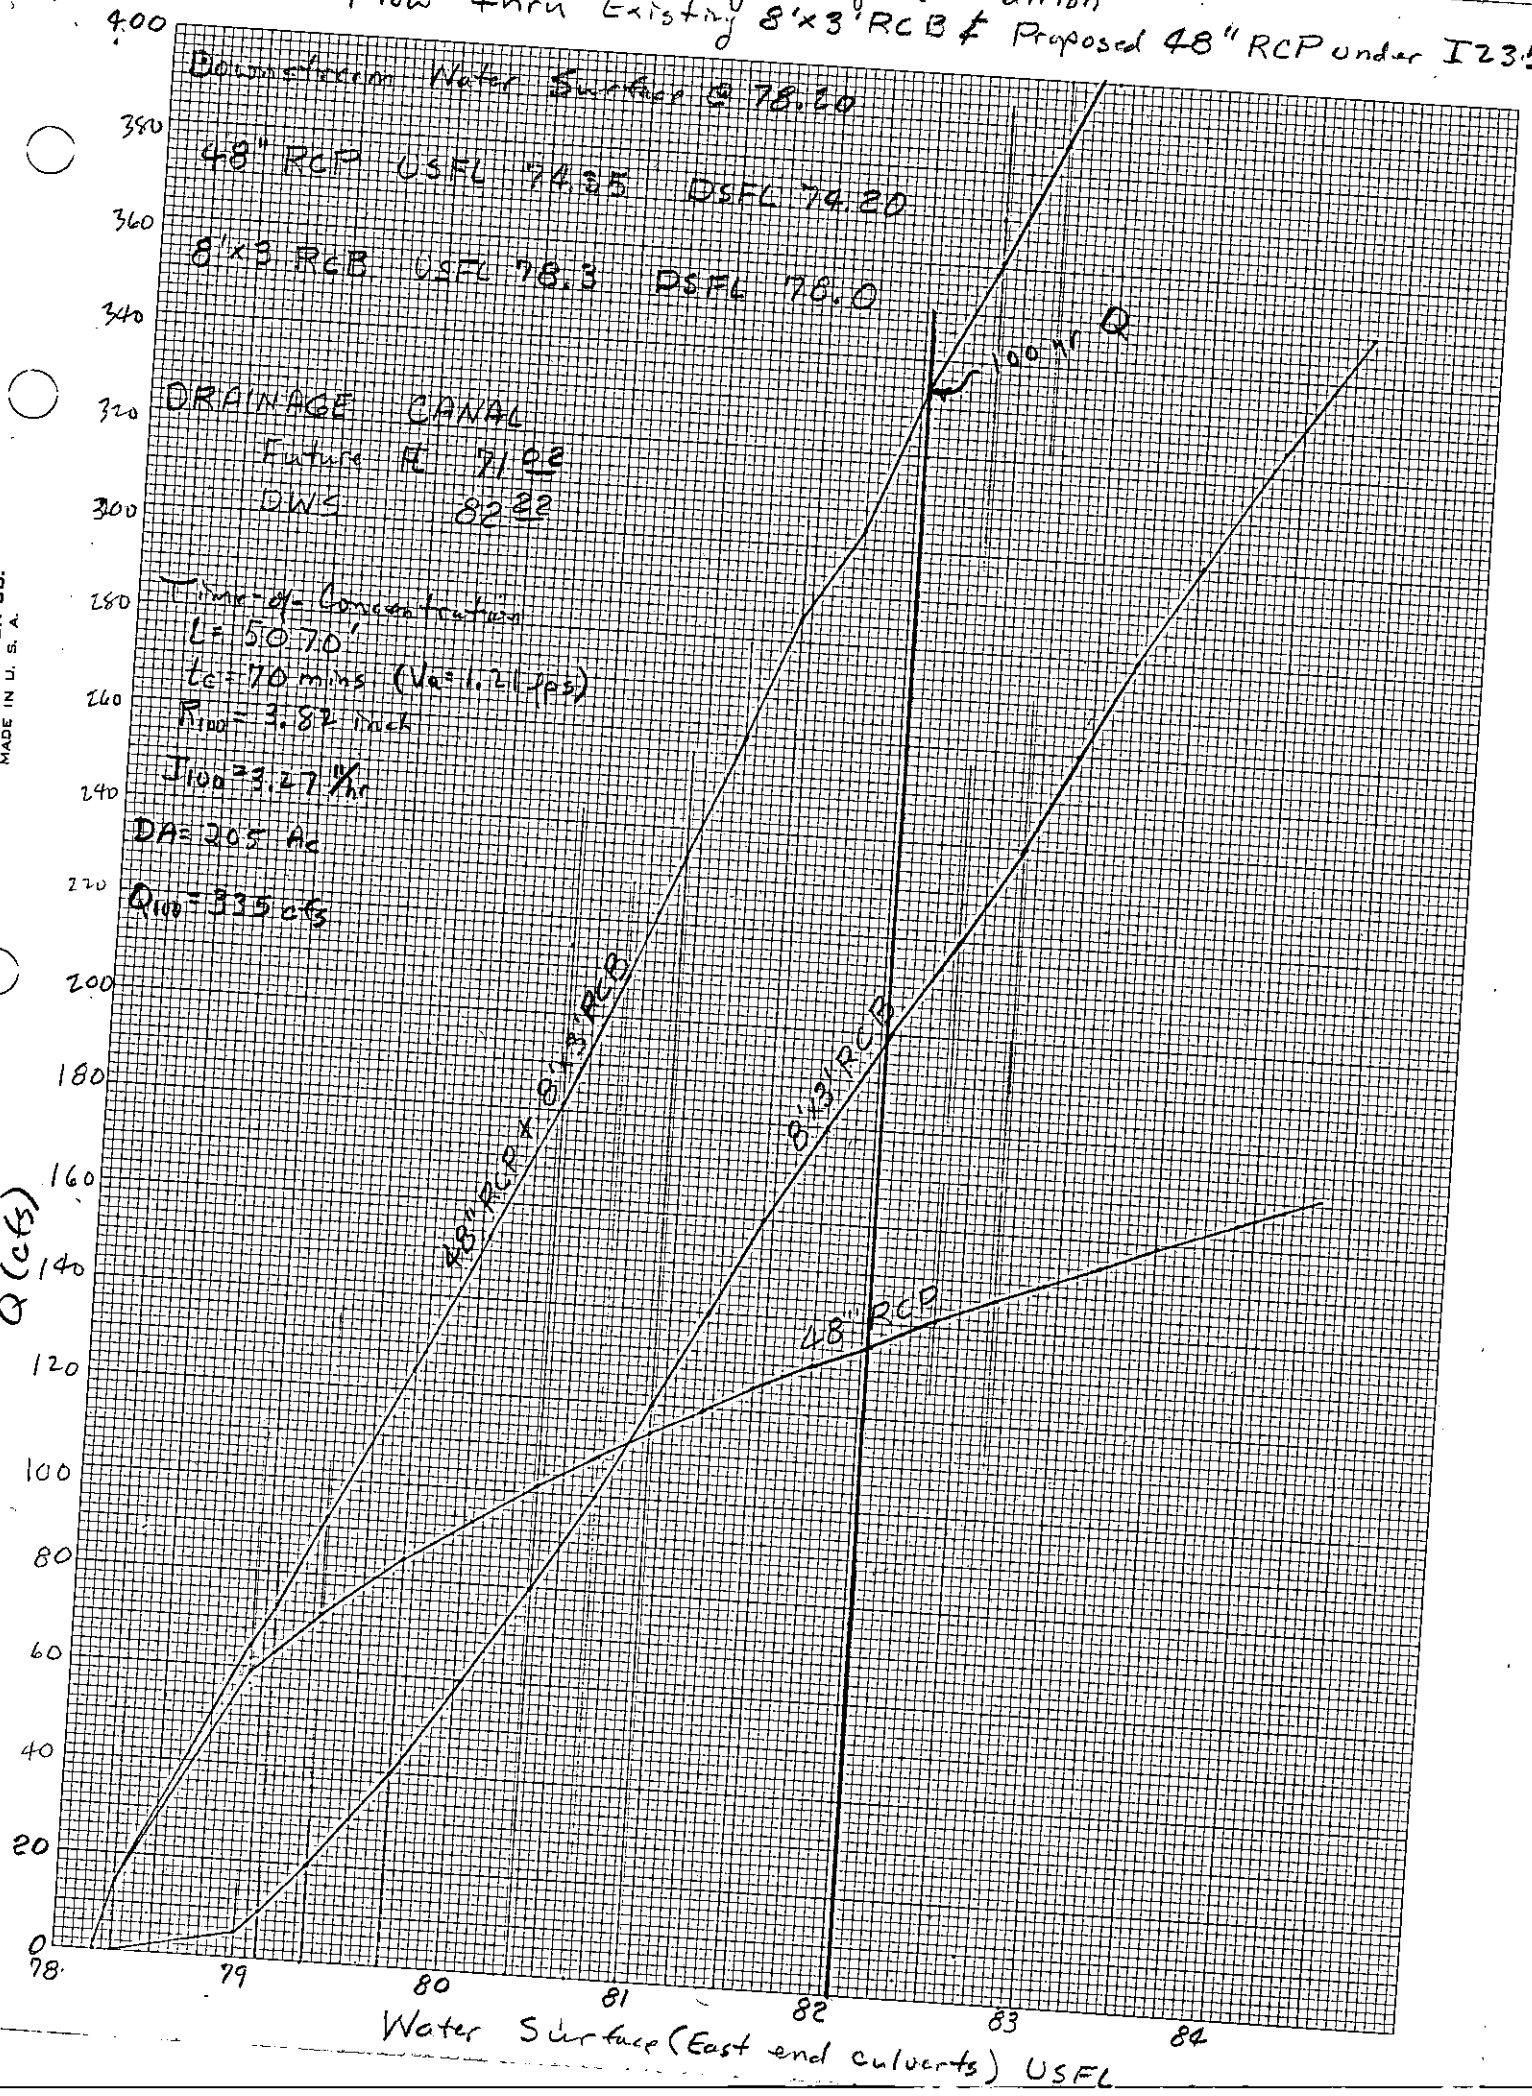 Flow thru Existing 8'x3' RCB & Proposed 48" RCP under I235
Downstream Water Surface @ 78.20
48" RCP USFL 74.35 DSFL 74.20
8'x3 RCB USFL 78.3 DSFL 78.0
100 yr Q
DRAINAGE CANAL
Future FL 71.02
DWS 82.22
Time-of-Concentration
L = 5070'
tc = 70 mins (Va = 1.21 fps)
R100 = 3.82 inch
I100 = 3.27 "/hr
DA = 205 Ac
Q100 = 335 cfs
MADE IN U. S. A.
400
380
360
340
320
300
280
260
240
220
200
180
160
140
120
100
80
60
40
20
0
Q (cfs)
48" RCP x 8'x3' RCB
8'x3' RCB
48" RCP
78 79 80 81 82 83 84
Water Surface (East end culverts) USFL